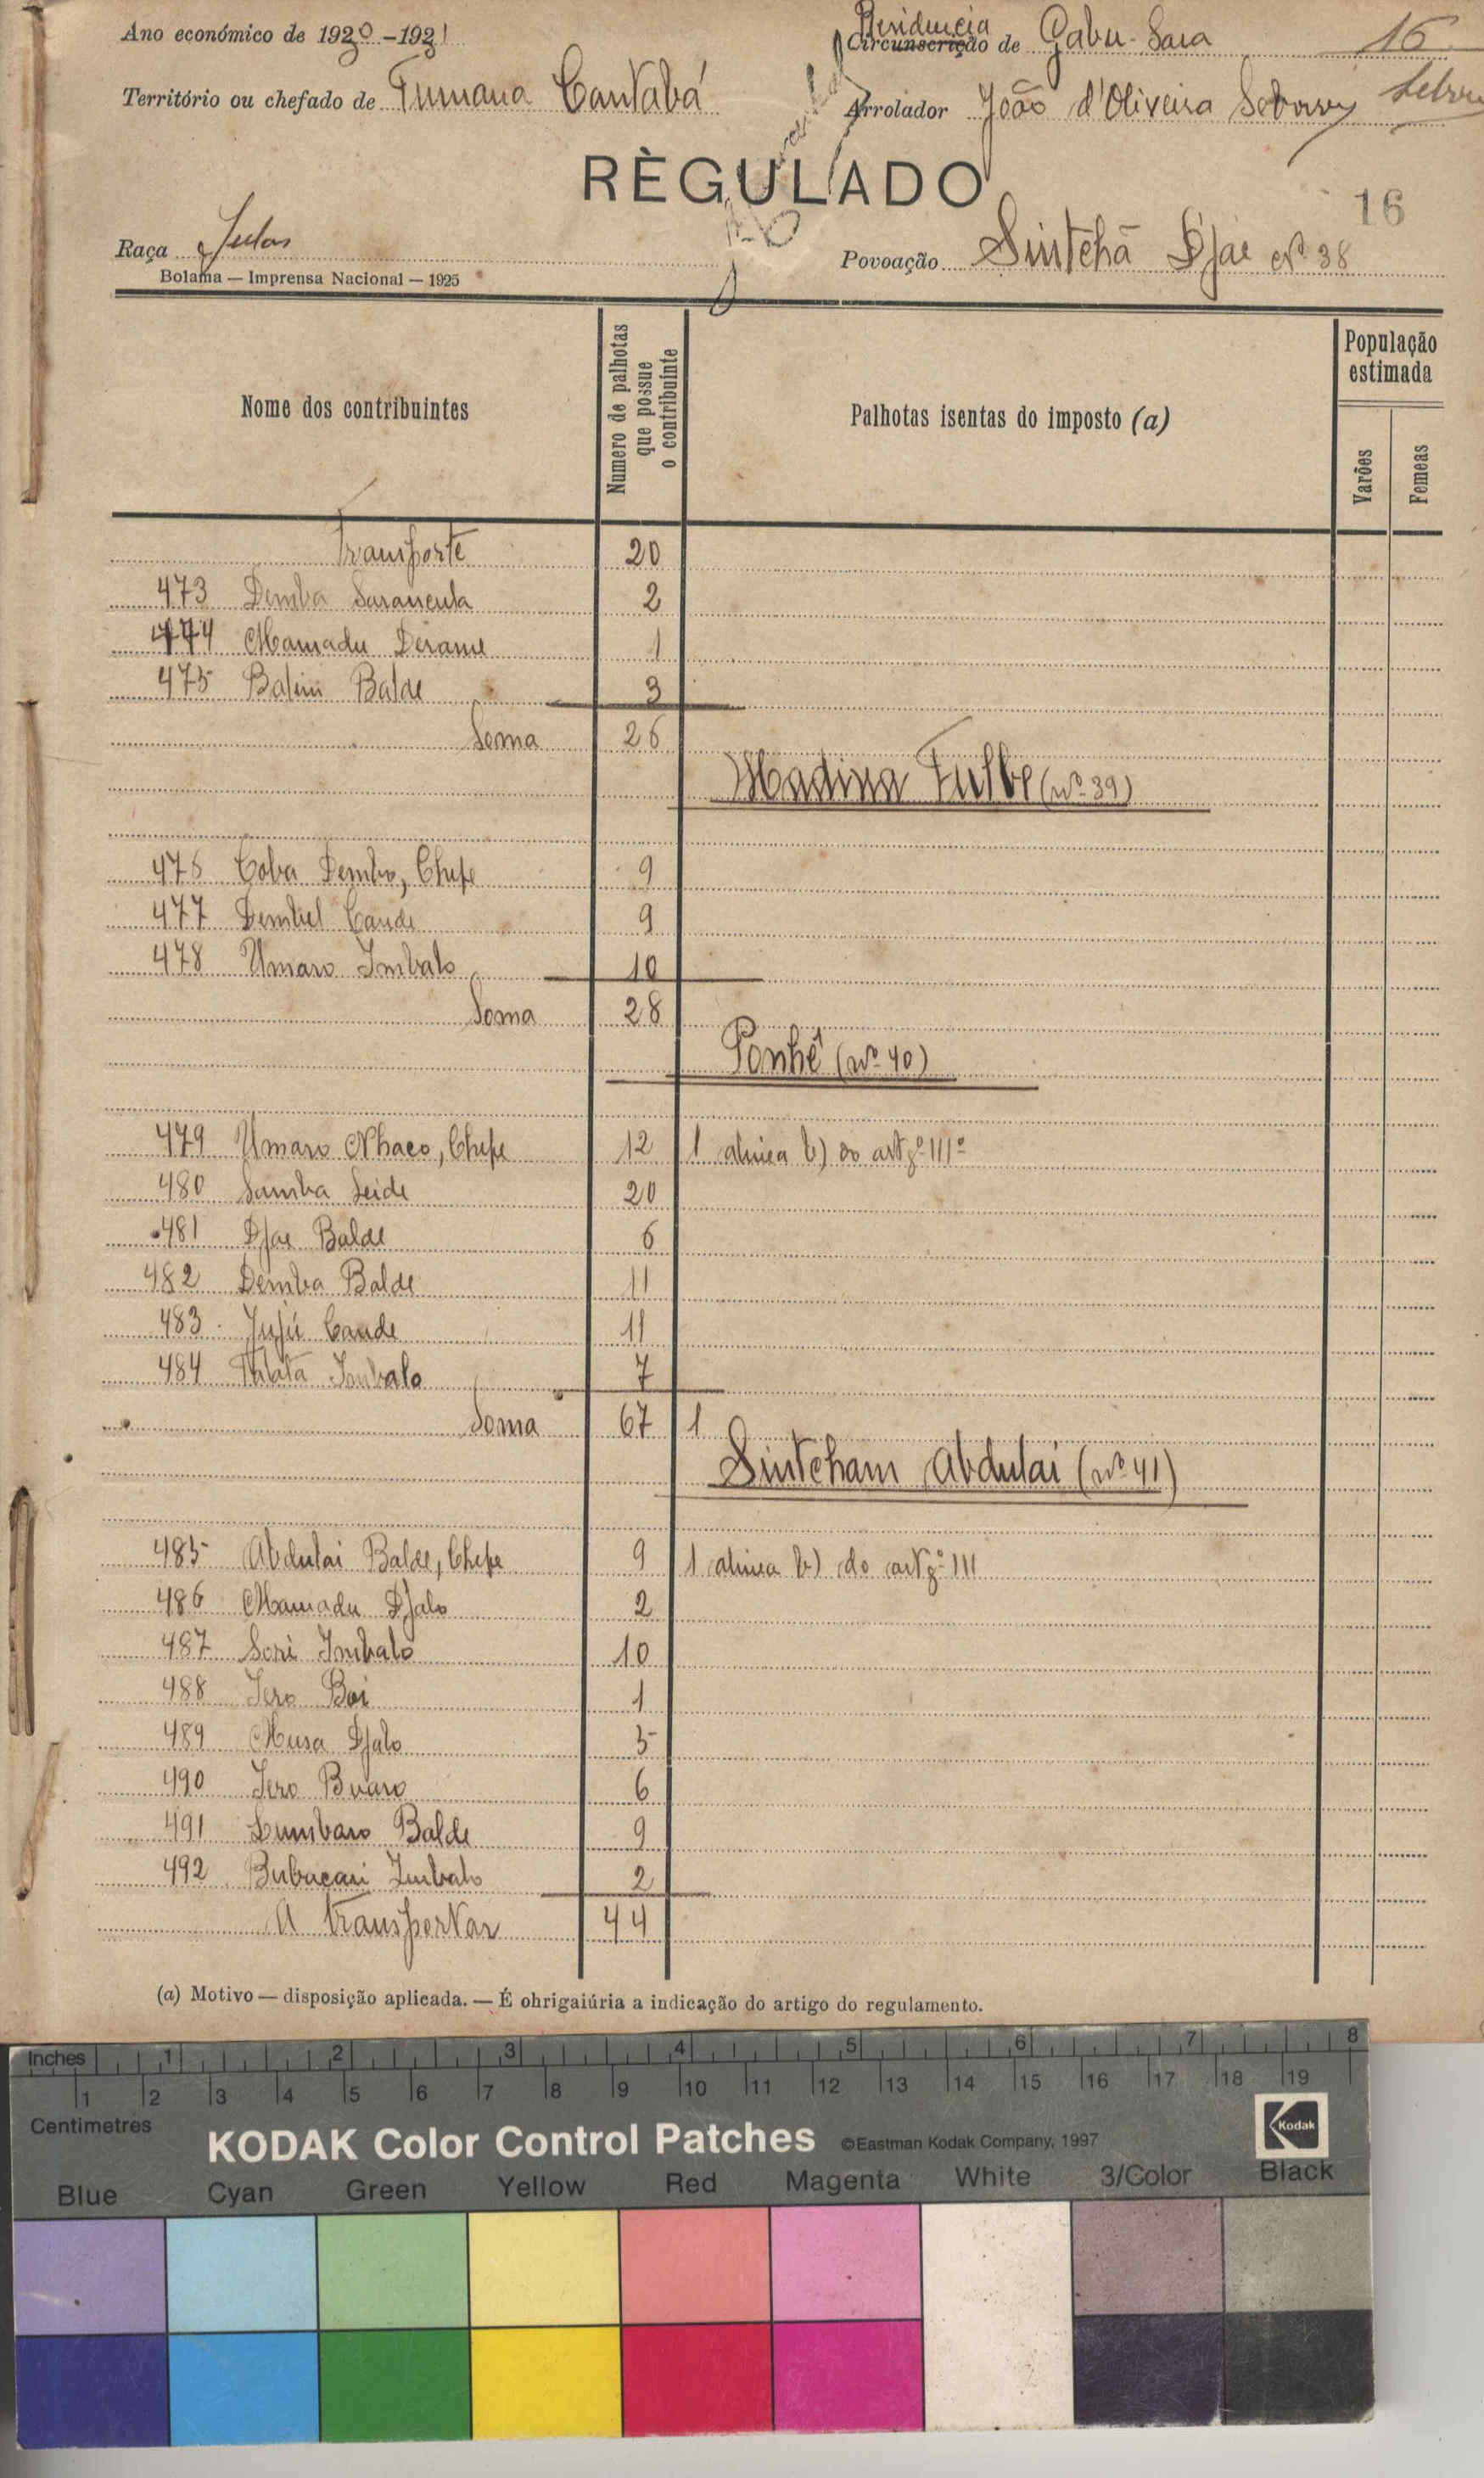 Ano económico de 1930-1931
Residencia
Circunscrição de Gabu-Sara 16
Território ou chefado de Tumana Cantabá
Arrolador João d'Oliveira
RÈGULADO
16
Raça Fulas
Povoação Sintchã Djae nº 38
Bolama — Imprensa Nacional — 1925
Nome dos contribuintes
Numero de palhotas que possue o contribuinte
Palhotas isentas do imposto (a)
População estimada
Varões
Femeas
Transporte 20
473 Demba Sarancula 2
474 Mamadu Derame 1
475 Balde 3
Soma 26
Madina Fulbe (nº 39)
476 Coba Dembo, Chefe 9
477 Dembel Cande 9
478 Umaro Imbalo 10
Soma 28
Ponhê (nº 40)
479 Umaro Nhaco, Chefe 12 1 alinea b) do artgº IIIº
480 Samba Seide 20
481 Djae Balde 6
482 Demba Balde 11
483 Jujú Cande 11
484 Imbalo 7
Soma 67 1
Sintcham Abdulai (nº 41)
485 Abdulai Balde, Chefe 9 1 alinea b) do artgº III
486 Mamadu Djalo 2
487 Sori Imbalo 10
488 Iero Boi 1
489 Musa Djalo 5
490 Iero Buaro 6
491 Sumbaro Balde 9
492 Bubacari Imbalo 2
A transportar 44
(a) Motivo — disposição aplicada. — É ohrigaiúria a indicação do artigo do regulamento.
Inches 1 2 3 4 5 6 7 8
1 2 3 4 5 6 7 8 9 10 11 12 13 14 15 16 17 18 19
Centimetres
KODAK Color Control Patches ©Eastman Kodak Company, 1997 Kodak
Blue Cyan Green Yellow Red Magenta White 3/Color Black